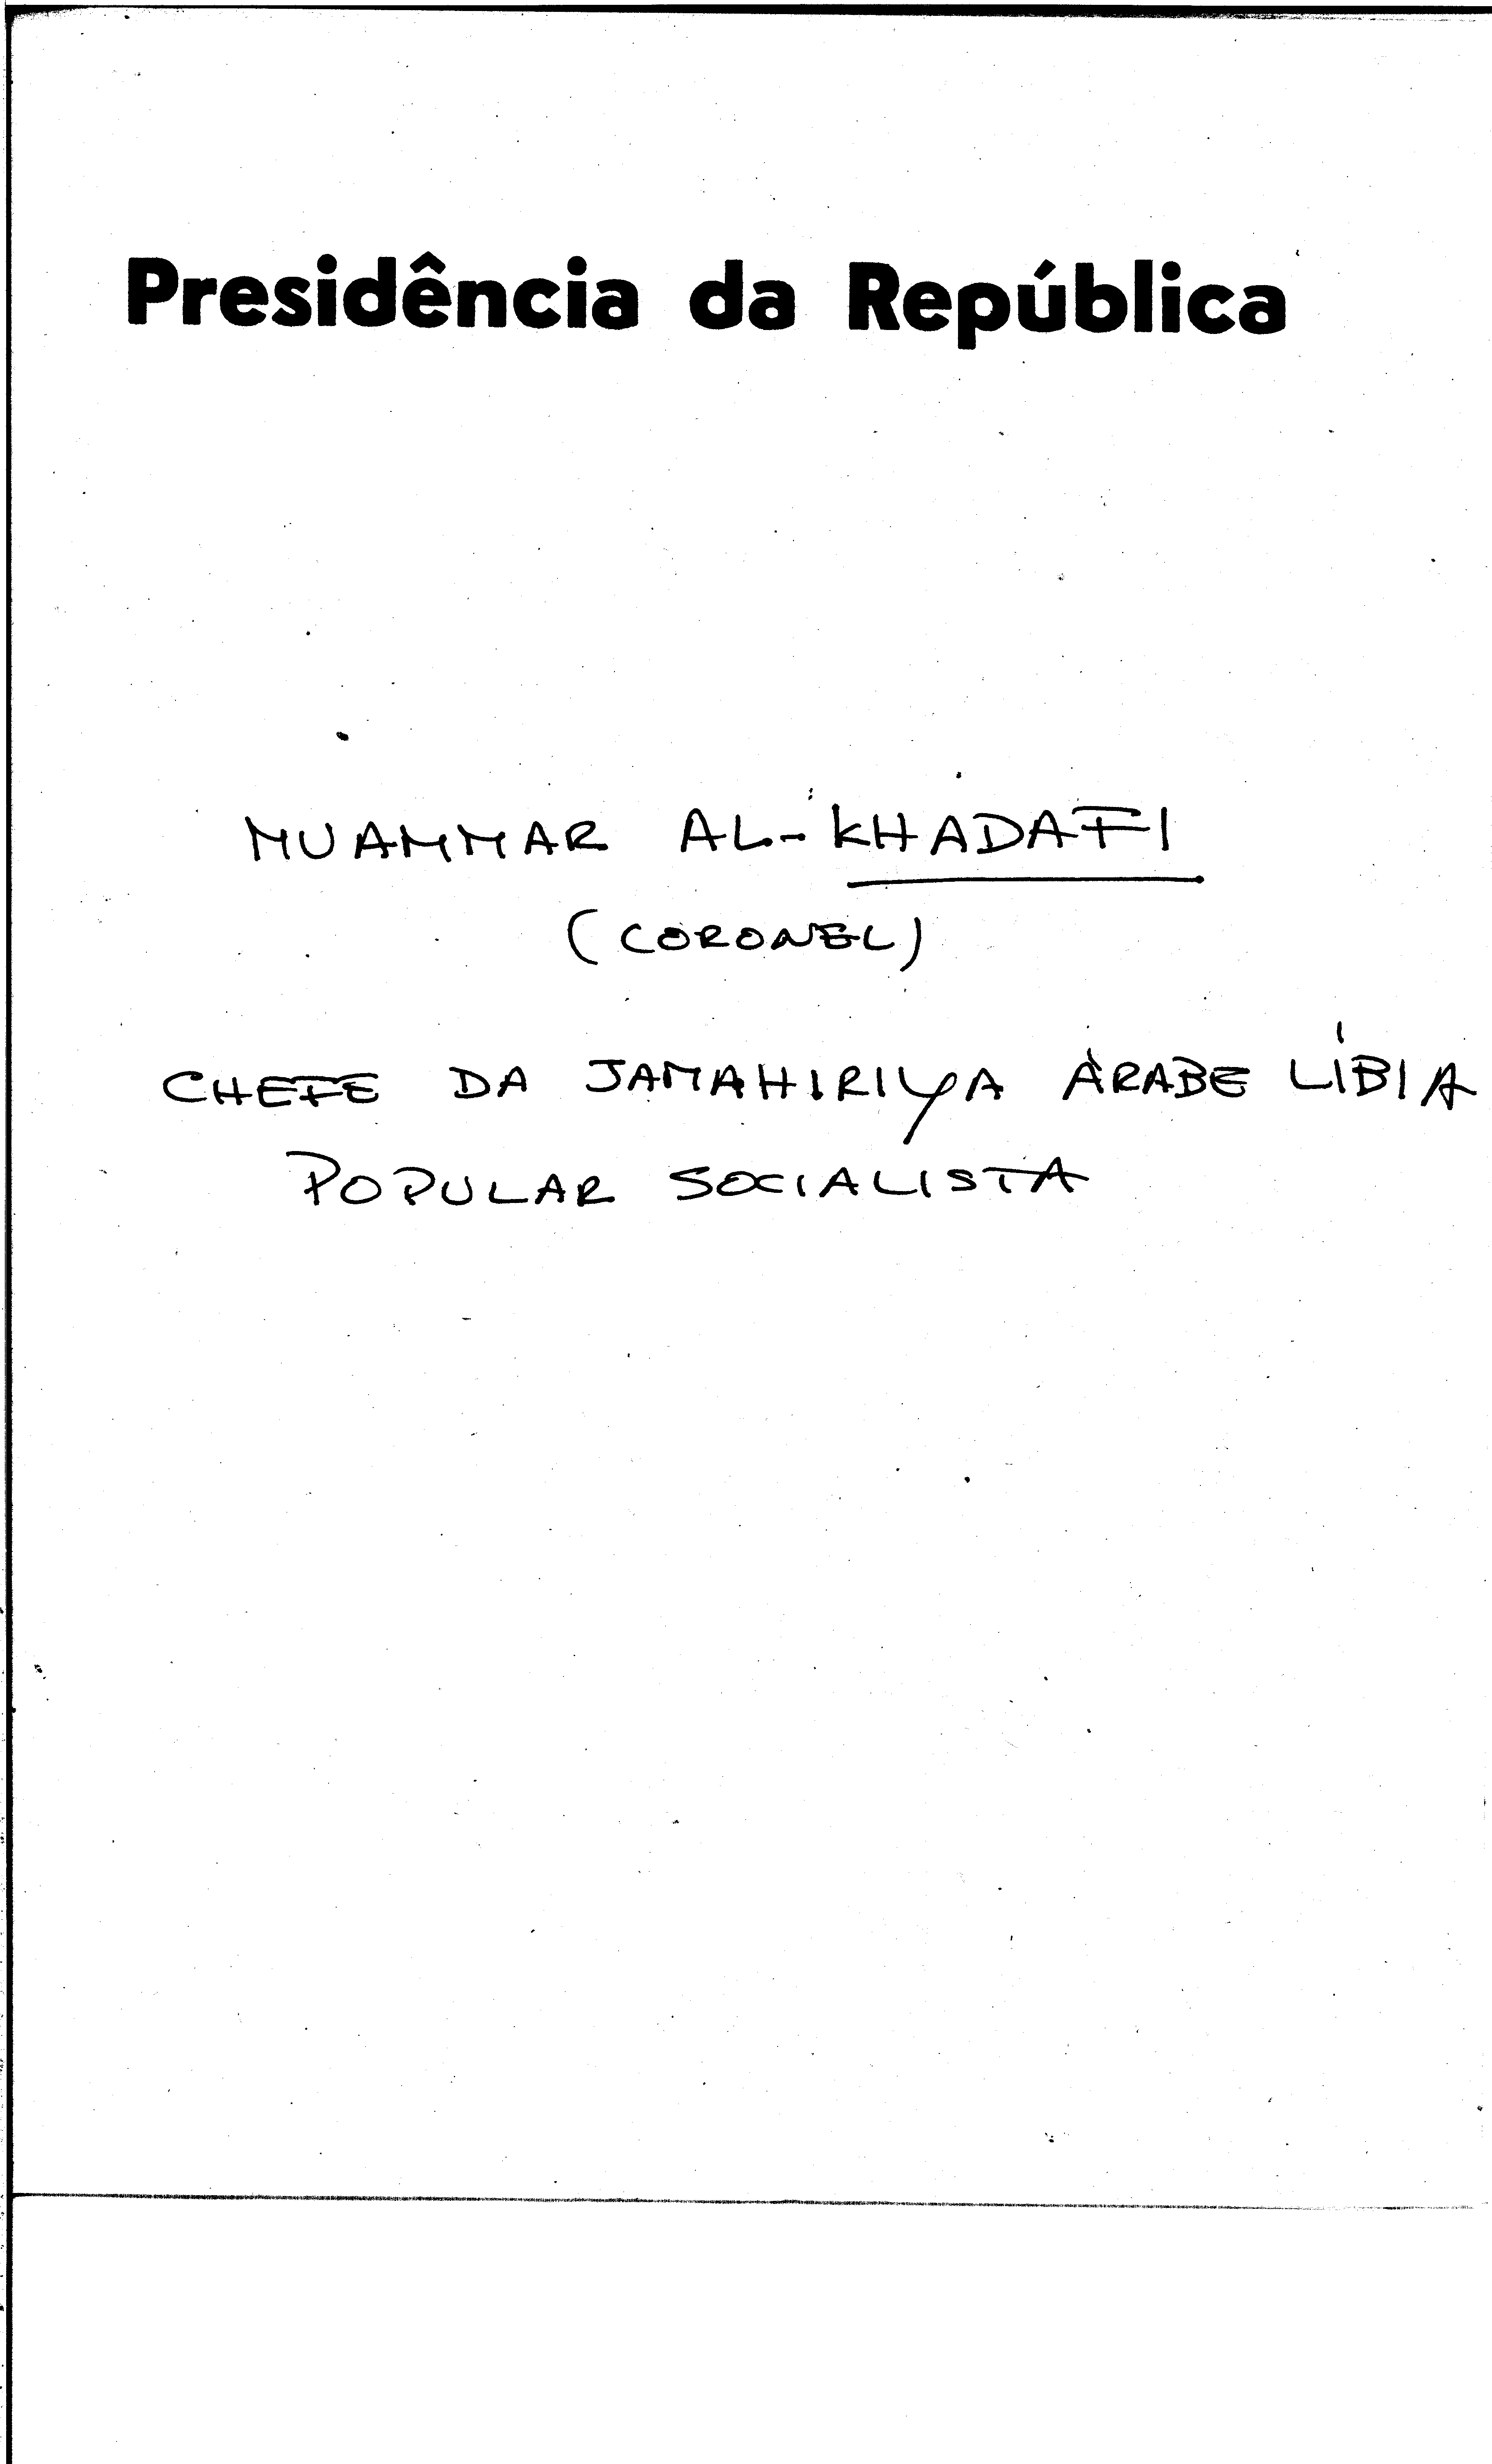 Presidência da República
MUAMMAR AL-KHADAFI
(CORONEL)
CHEFE DA JAMAHIRIYA ÁRABE LÍBIA
POPULAR SOCIALISTA